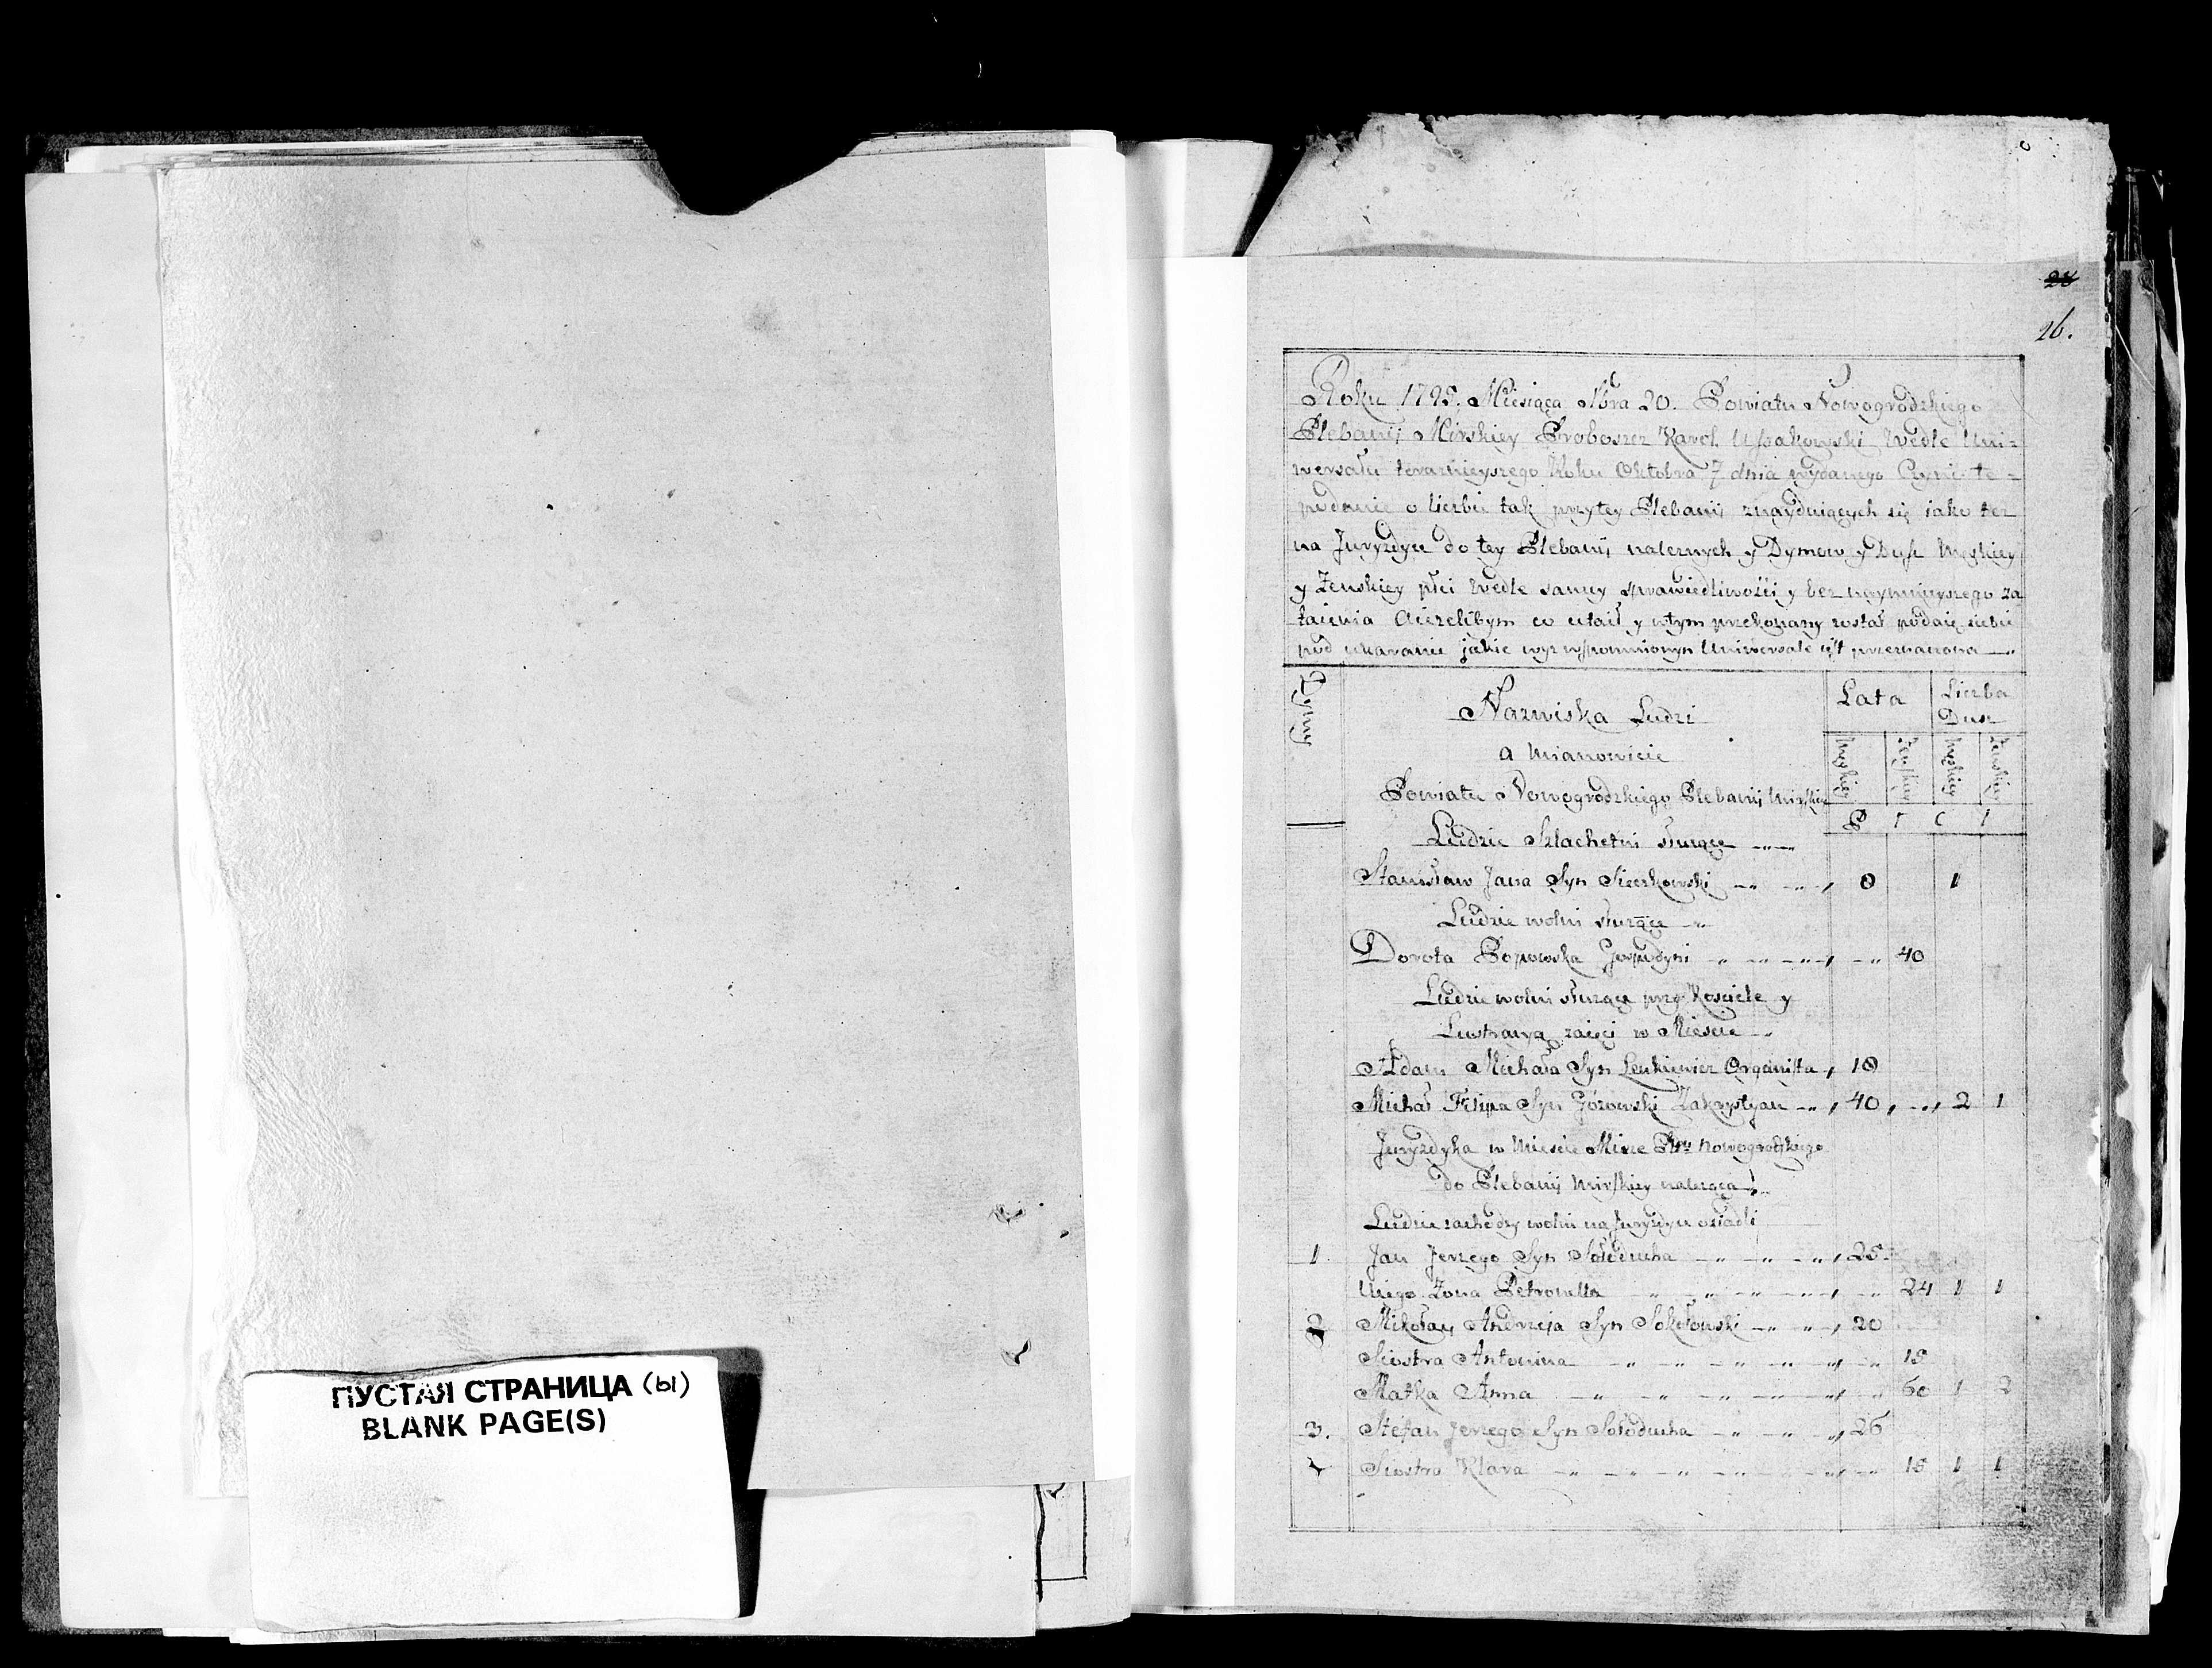 ПУСТАЯ СТРАНИЦА (ы)
BLANK PAGE(S)
28
26.
Roku 1795. Miesiąca 20. Powiatu Nowogrodzkiego
Plebanij Mirskiey Proboszcz Karol Wedle Uni=
wersału teraznieyszego Roku Oktobra 7 dnia wydanego te=
podanie o liczbie tak przy tey Plebanij znayduiących się iako tez
na Juryzdyce do tey Plebanij naleznych y Dymow y Dusz Męskiey
y Zenskiey płci Wedle samey sprawiedliwości y bez naymnieyszego za
taienia Aieżelibym co utaił y wtym przekonany został podaię siebie
pod ukaranie jakie wyz wspomnionym Uniwersale iest przeznaczona
Dymy
Nazwiska Ludzi
a Mianowicie
Powiatu Nowogrodzkiego Plebanij Mirskiey
Lata
Liczba
Dusz
Męskiey
Zenskiey
Męskiey
Zenskiey
Ludzie Szlachetni służące
Stanisław Jana Syn Sieczkowski 8 1
Ludzie wolni służące
Dorota Popowska Gospodyni 40
Ludzie wolni służące przy Kosciele y
Lustracyą zaięci w Miescie
Adam Michała Syn Lenkiewicz Organista 18
Michał Filipa Syn Gorowski Zakrystyan 40 2 1
Juryzdyka w Miescie Mirze Nowogrodzkiego
do Plebanij Mirskiey naleząca
Ludzie zachodzy wolni na Juryzdyce osiadli
1. Jan Jerzego Syn Sołoducha 25.
Uiego Zona Petronella 24 1 1
2 Mikołay Andrzeja Syn Sokołowski 20
Siostra Antonina 18
Matka Anna 60 1 2
3. Stefan Jerzego Syn Sołoducha 26
Siostra Klara 15 1 1